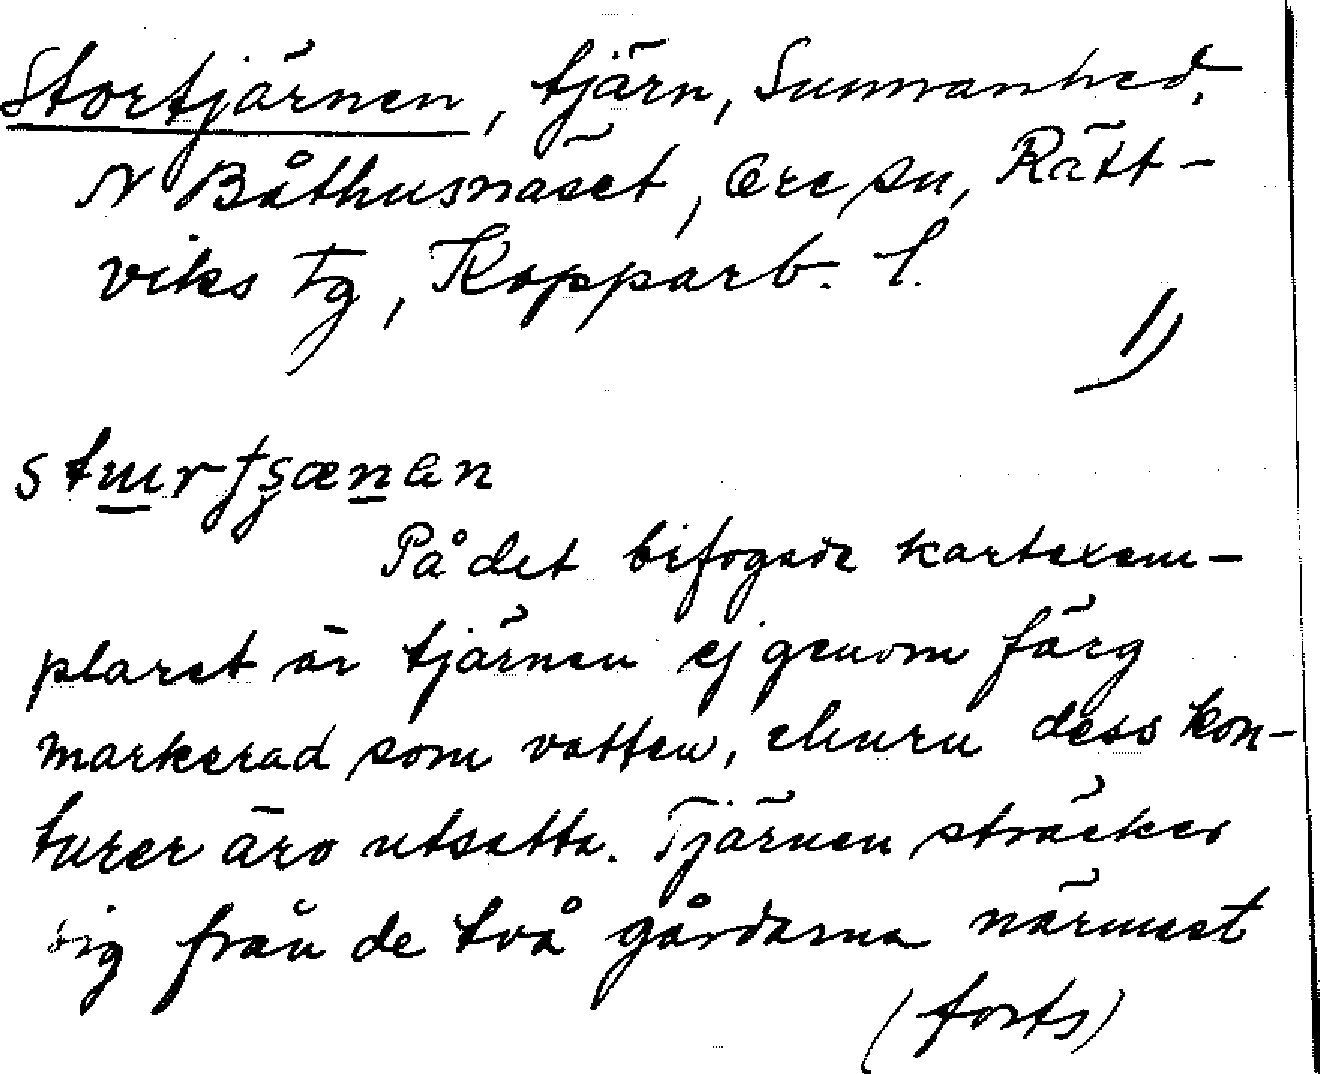 Stortjärnen, tjärn, Sunnanhed,
N Båthusnäset, Ore sn, Rätt-
viks tg, Kopparb. l.
1)
På det bifogade kartexem-
plaret är tjärnen ej genom färg
markerad som vatten, ehuru dess kon-
turer äro utsatta. Tjärnen sträcker
sig från de två gårdarna närmast
(forts)